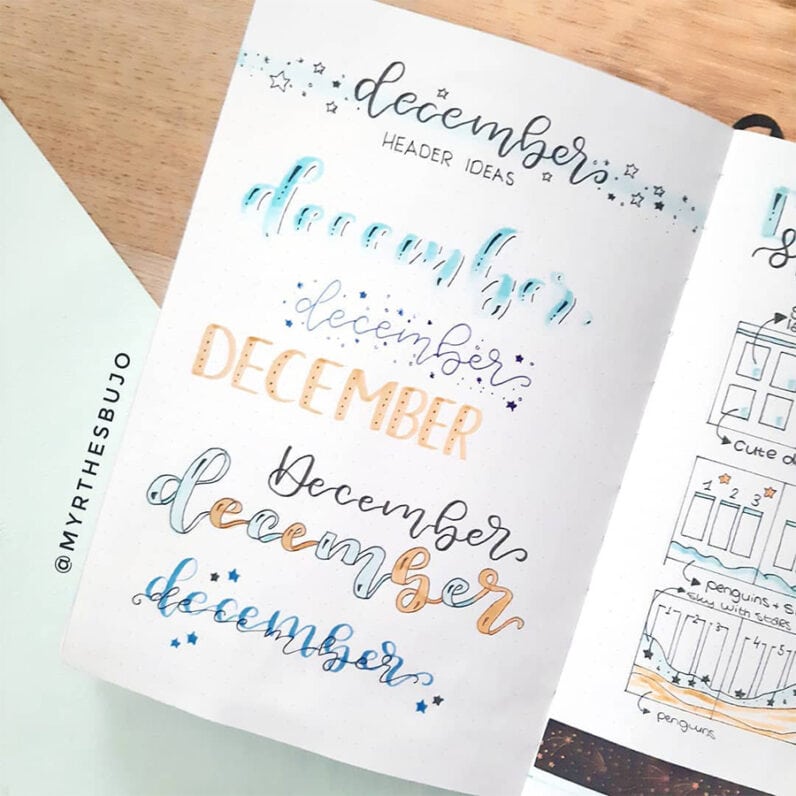 december
HEADER IDEAS
december
december
DECEMBER
December
december
december
december
@MYRTHESBUJO
Cute d
1 2 3
penguins + S
sky with stars
1 2 3 4 5
penguins